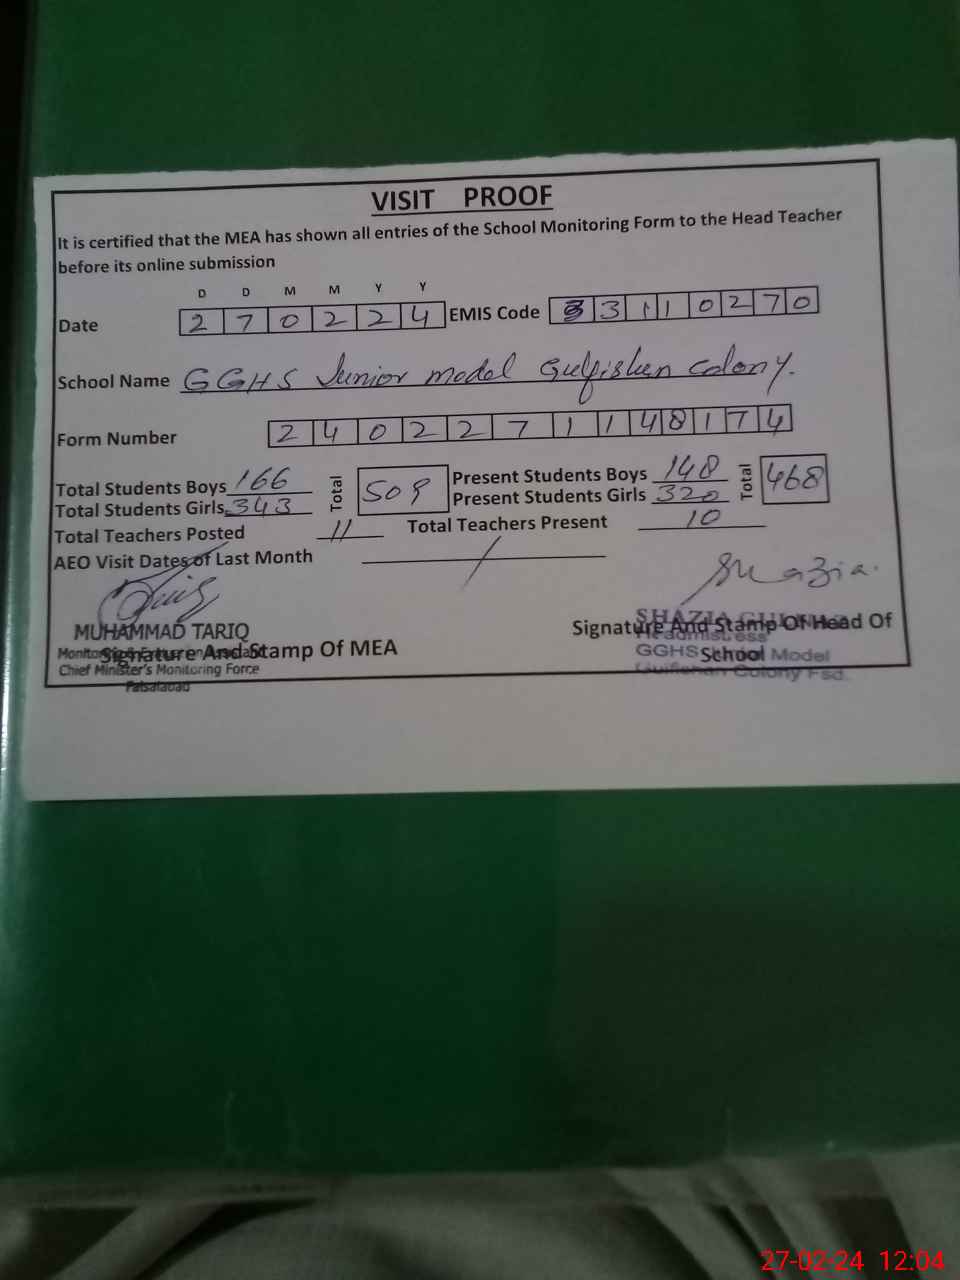 VISIT PROOF
It is certified that the MEA has shown all entries of the School Monitoring Form to the Head Teacher
before its online submission
D D M M Y Y
Date 2 7 0 2 2 4 EMIS Code 3 3 1 1 0 2 7 0
School Name GGHS Junior model Gulfishan Colony.
Form Number 2 4 0 2 2 7 1 1 4 8 1 7 4
Total Students Boys 166 Total 509 Present Students Boys 148 Total 468
Total Students Girls 343 Present Students Girls 320
Total Teachers Posted 11 Total Teachers Present 10
AEO Visit Dates of Last Month /
Shazia.
MUHAMMAD TARIQ
Signature And Stamp Of MEA
Chief Minister's Monitoring Force
Faisalabad
SHAZIA
Signature And Stamp Of Head Of
Headmistress
School
GGHS Model
Gulfishan Colony Fsd.
27-02-24 12:04